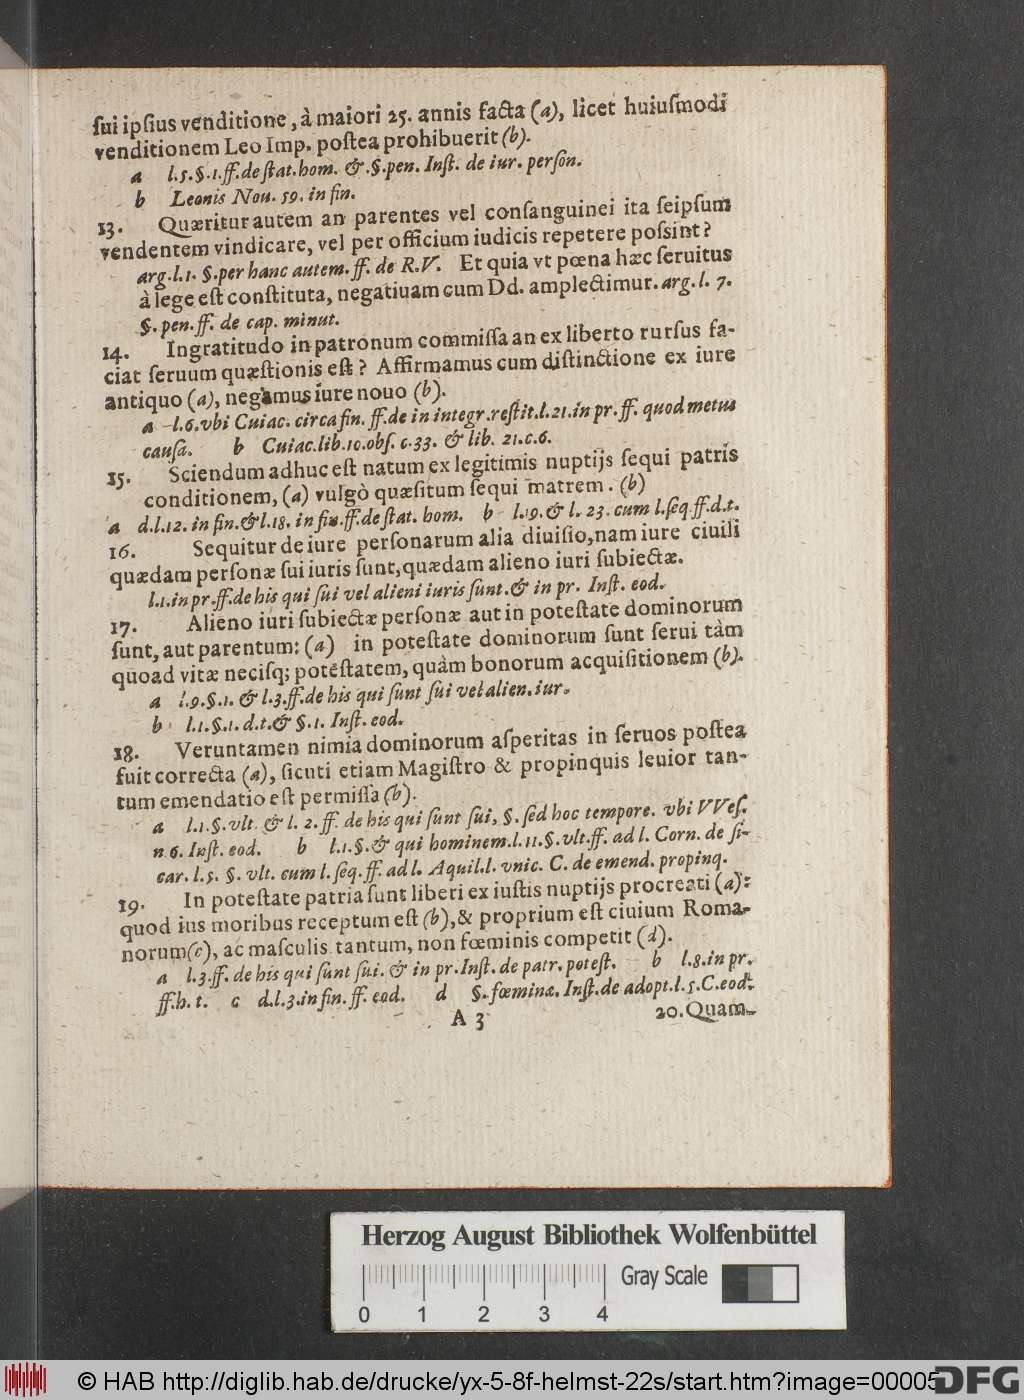 ſui ipſius venditione, à maiori 25. annis facta (a), licet huiuſmodi
venditionem Leo Imp. poſtea prohibuerit (b).
a l.5.§.1.ff.de ſtat.hom. &.§.pen. Inſt. de iur. perſon.
b Leonis Nou. 59. in fin.
13. Quæritur autem an parentes vel conſanguinei ita ſeipſum
vendentem vindicare, vel per officium iudicis repetere poſsint?
arg.l.1. §.per hanc autem. ff. de R.V. Et quia vt pœna hæc ſeruitus
à lege eſt conſtituta, negatiuam cum Dd. amplectimur. arg.l. 7.
§.pen.ff. de cap. minut.
14. Ingratitudo in patronum commiſſa an ex liberto rurſus fa-
ciat ſeruum quæſtionis eſt? Affirmamus cum diſtinctione ex iure
antiquo (a), negamus iure nouo (b).
a l.6.vbi Cuiac. circa fin. ff.de in integr.reſtit.l.21.in pr.ff. quod metus
cauſa. b Cuiac.lib.10.obſ. c.33. & lib. 21.c.6.
15. Sciendum adhuc eſt natum ex legitimis nuptijs ſequi patris
conditionem, (a) vulgò quæſitum ſequi matrem. (b)
a d.l.12. in fin.&l.18. in fin.ff.de ſtat. hom. b l.19.& l. 23. cum l.ſeq.ff.d.t.
16. Sequitur de iure perſonarum alia diuiſio, nam iure ciuili
quædam perſonæ ſui iuris ſunt, quædam alieno iuri ſubiectæ.
l.1.in pr.ff.de his qui ſui vel alieni iuris ſunt.& in pr. Inſt. eod.
17. Alieno iuri ſubiectæ perſonæ aut in poteſtate dominorum
ſunt, aut parentum: (a) in poteſtate dominorum ſunt ſerui tàm
quoad vitæ neciſq; poteſtatem, quàm bonorum acquiſitionem (b).
a l.9.§.1. & l.3.ff.de his qui ſunt ſui vel alien. iur.
b l.1.§.1. d.t.& §.1. Inſt. eod.
18. Veruntamen nimia dominorum aſperitas in ſeruos poſtea
fuit correcta (a), ſicuti etiam Magiſtro & propinquis leuior tan-
tum emendatio eſt permiſſa (b).
a l.1.§.vlt. & l. 2. ff. de his qui ſunt ſui, §. ſed hoc tempore. vbi VVeſ.
n 6. Inſt. eod. b l.1.§.& qui hominem.l.11.§.vlt.ff. ad l. Corn. de ſi-
car. l.5. §. vlt. cum l. ſeq. ff. ad l. Aquil.l. vnic. C. de emend. propinq.
19. In poteſtate patria ſunt liberi ex iuſtis nuptijs procreati (a):
quod ius moribus receptum eſt (b), & proprium eſt ciuium Roma-
norum (c), ac maſculis tantum, non fœminis competit (d).
a l.3.ff. de his qui ſunt ſui. & in pr.Inſt. de patr. poteſt. b l.8.in pr.
ff.h. t. c d.l.3.in fin. ff. eod. d §.fœminæ. Inſt.de adopt.l.5.C.eod.
A 3 20. Quam-
Herzog August Bibliothek Wolfenbüttel
Gray Scale
0 1 2 3 4
© HAB http://diglib.hab.de/drucke/yx-5-8f-helmst-22s/start.htm?image=00005
DFG